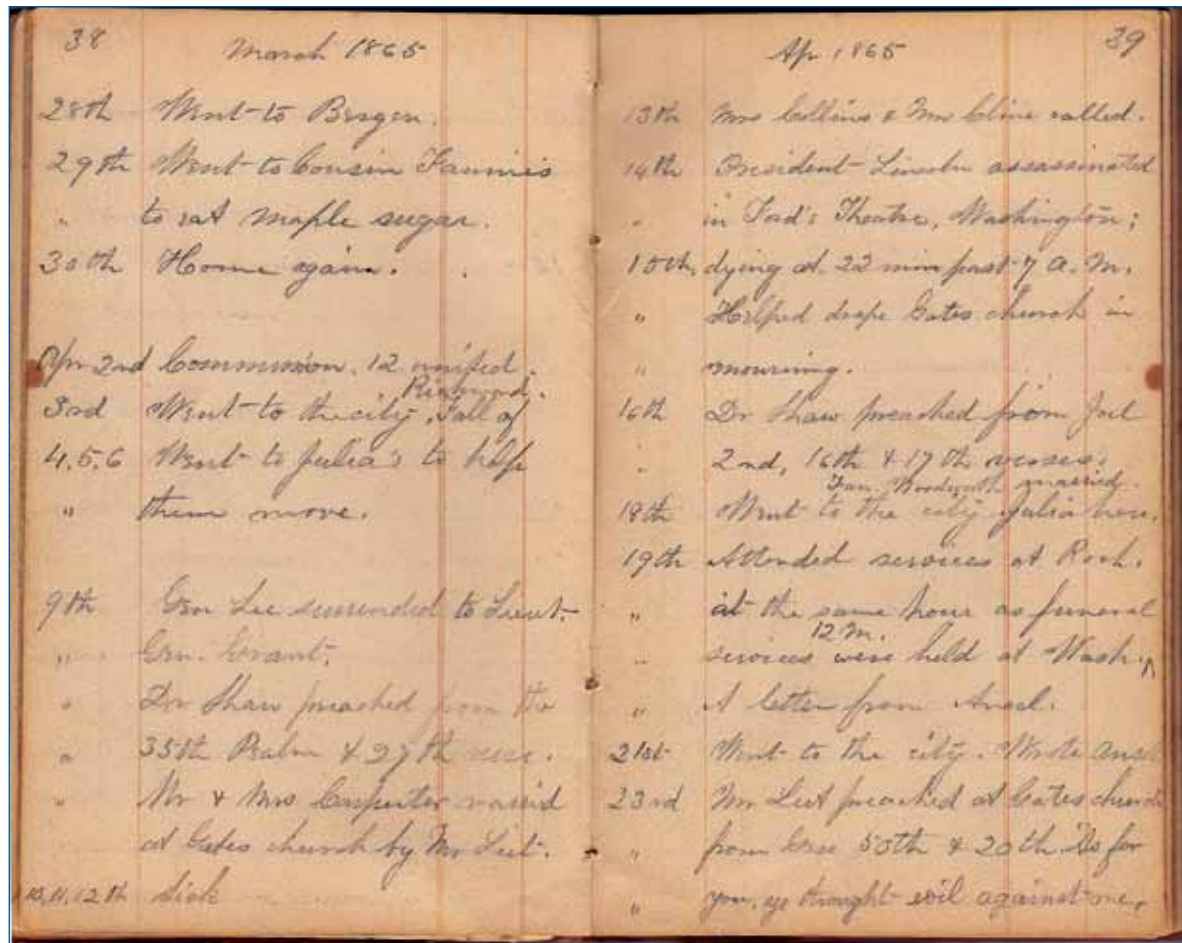 38
March 1865
28th Went to Bergen.
29th Went to Cousin Fannie's
" to eat maple sugar.
30th Home again.
Apr 2nd Communion. 12 united.
Richmond.
3rd Went to the city. Fall of
4,5,6 Went to Julia's to help
" them move.
9th Gen Lee surrended to Lieut.
" Gen. Grant.
" Dr Shaw preached from the
" 35th Psalm & 27th verse.
" Mr & Mrs Carpenter married
at Gates church by Mr Leet.
10,11,12th Sick
39
Ap 1865
13th Mrs Collins & Mrs Cline called.
14th President Lincoln assassinated
" in Ford's Theatre, Washington;
15th, dying at 22 min past 7 A. M.
" Helped drape Gates church in
" mourning.
16th Dr Shaw preached from Joel
" 2nd, 16th & 17th verses.
Fan Woodworth married.
18th Went to the city Julia here.
19th Attended services at Roch.
" at the same hour as funeral
12 M.
" services were held at Wash. ^
" A letter from Ansel.
21st Went to the city. Wrote Ansel
23rd Mr Leet preached at Gates church
" from Gen 50th & 20th "As for
" you, ye thought evil against me,